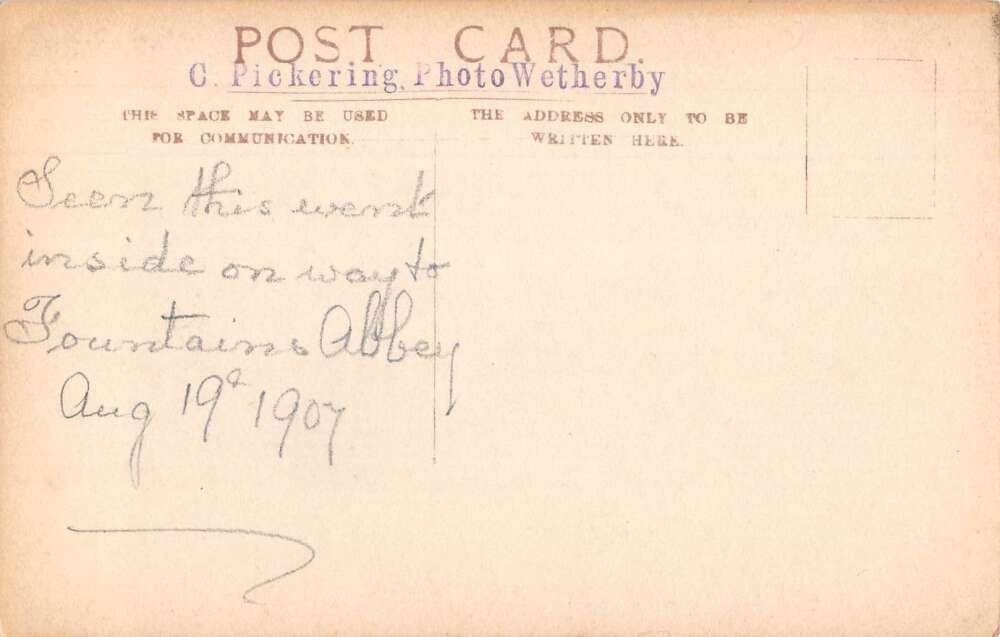 POST CARD.
C. Pickering, Photo Wetherby
THIS SPACE MAY BE USED
FOR COMMUNICATION.
THE ADDRESS ONLY TO BE
WRITTEN HERE.
Seen this went
inside on way to
Fountains Abbey
Aug 19th 1907